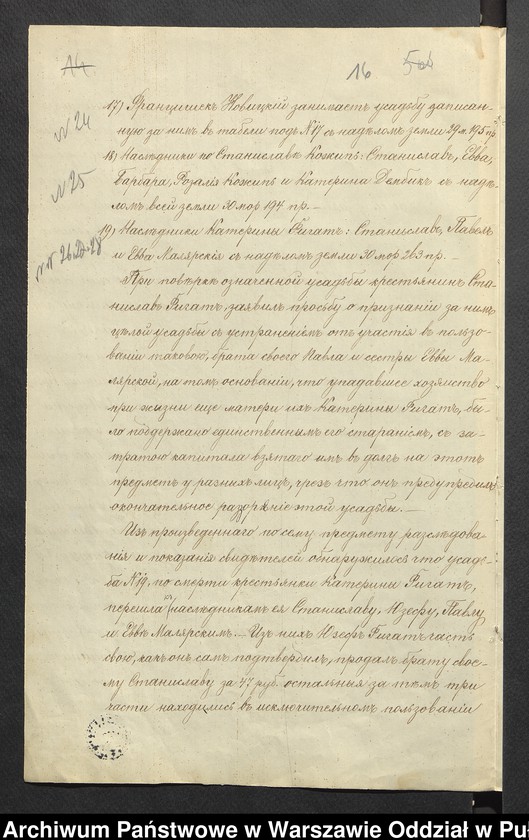 14
16
504
17) Францишекъ Новицкій занимаетъ усадьбу записан-
ную за нимъ въ табели подъ №17 съ надѣломъ земли 29 м. 195 пр.
№24
18) Наслѣдники по Станиславѣ Кожипъ: Станиславъ, Евва,
Барбара, Розалія Кожипъ и Катерина Дембикъ съ надѣ-
ломъ всей земли 30 мор 194 пр. –
№25
19) Наслѣдники Катерины Гигатъ: Станиславъ, Павелъ
и Евва Малярскія съ надѣломъ земли 30 мор 263 пр. –
№№ 26 27 28
При повѣркѣ означенной усадьбы крестьянинъ Ста-
ниславъ Гигатъ, заявилъ просьбу о признаніи за нимъ
цѣлой усадьбы съ устраненіемъ отъ участія въ пользо-
ваніи таковою, брата своего Павла и сестры Еввы Ма-
лярской, на томъ основаніи, что упадавшее хозяйство
при жизни еще матери ихъ Катерины Гигатъ, бы-
ло поддержано единственнымъ его стараніемъ, съ за-
тратою капитала взятаго имъ въ долгъ на этотъ
предметъ у разныхъ лицъ, чрезъ что онъ предупредилъ
окончательное раззореніе этой усадьбы. –
Изъ произведеннаго по сему предмету разслѣдова-
нія и показанія свидѣтелей обнаружилось что усадь-
ба №19, по смерти крестьянки Катерины Гигатъ,
перешла наслѣдникамъ ея Станиславу, Юзефу, Павлу
и Еввѣ Малярскимъ. – Изъ нихъ Юзефъ Гигатъ часть
свою, какъ онъ самъ подтвердилъ, продалъ брату свое-
му Станиславу за 47 руб. остальныя за тѣмъ три
части находились въ исключительномъ пользованіи
Archiwum Państwowe w Warszawie Oddział w Pu